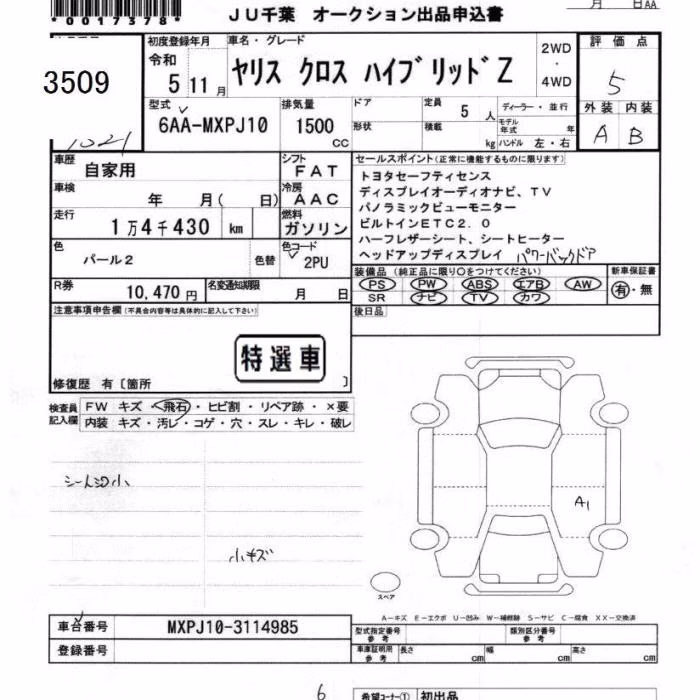 *0017378*
JU千葉 オークション出品申込書
月 日AA
3509
1021
初度登録年月 令和 5 11 月
車名・グレード
ヤリス クロス ハイブリッド Z
2WD ・ 4WD
評価点 5
外装 内装
A B
型式 6AA-MXPJ10
排気量 1500 CC
ドア
形状
定員 5 人
積載 kg
ディーラー・並行
モデル年式 年
ハンドル 左・右
車歴 自家用
シフト FAT
車検 年 月( 日)
冷房 AAC
走行 1万4千430 km
燃料 ガソリン
色 パール2 色替
色コード 2PU
R券 10,470円
名変通知期限 月 日
セールスポイント(正常に機能するものに限ります)
トヨタセーフティセンス
ディスプレイオーディオナビ、TV
パノラミックビューモニター
ビルトインETC2.0
ハーフレザーシート、シートヒーター
ヘッドアップディスプレイ パワーバックドア
装備品(純正品に限り○をつけてください)
PS PW ABS エアB AW
SR ナビ TV カワ
新車保証書
有・無
後日品
注意事項申告欄(不具合内容等は具体的に記入して下さい)
特選車
修復歴 有〔箇所 〕
検査員記入欄
FW キズ・飛石・ヒビ割・リペア跡・×要
内装 キズ・汚レ・コゲ・穴・スレ・キレ・破レ
シートシミ小
小キズ
A1
スペア
A-キズ E-エクボ U-凹み W-補修跡 S-サビ C-腐食 XX-交換済
車台番号 MXPJ10-3114985
登録番号
型式指定番号 参考
類別区分番号 参考
車庫証明用 参考 長さ cm 幅 cm 高さ cm
6
希望コーナー① 初出品